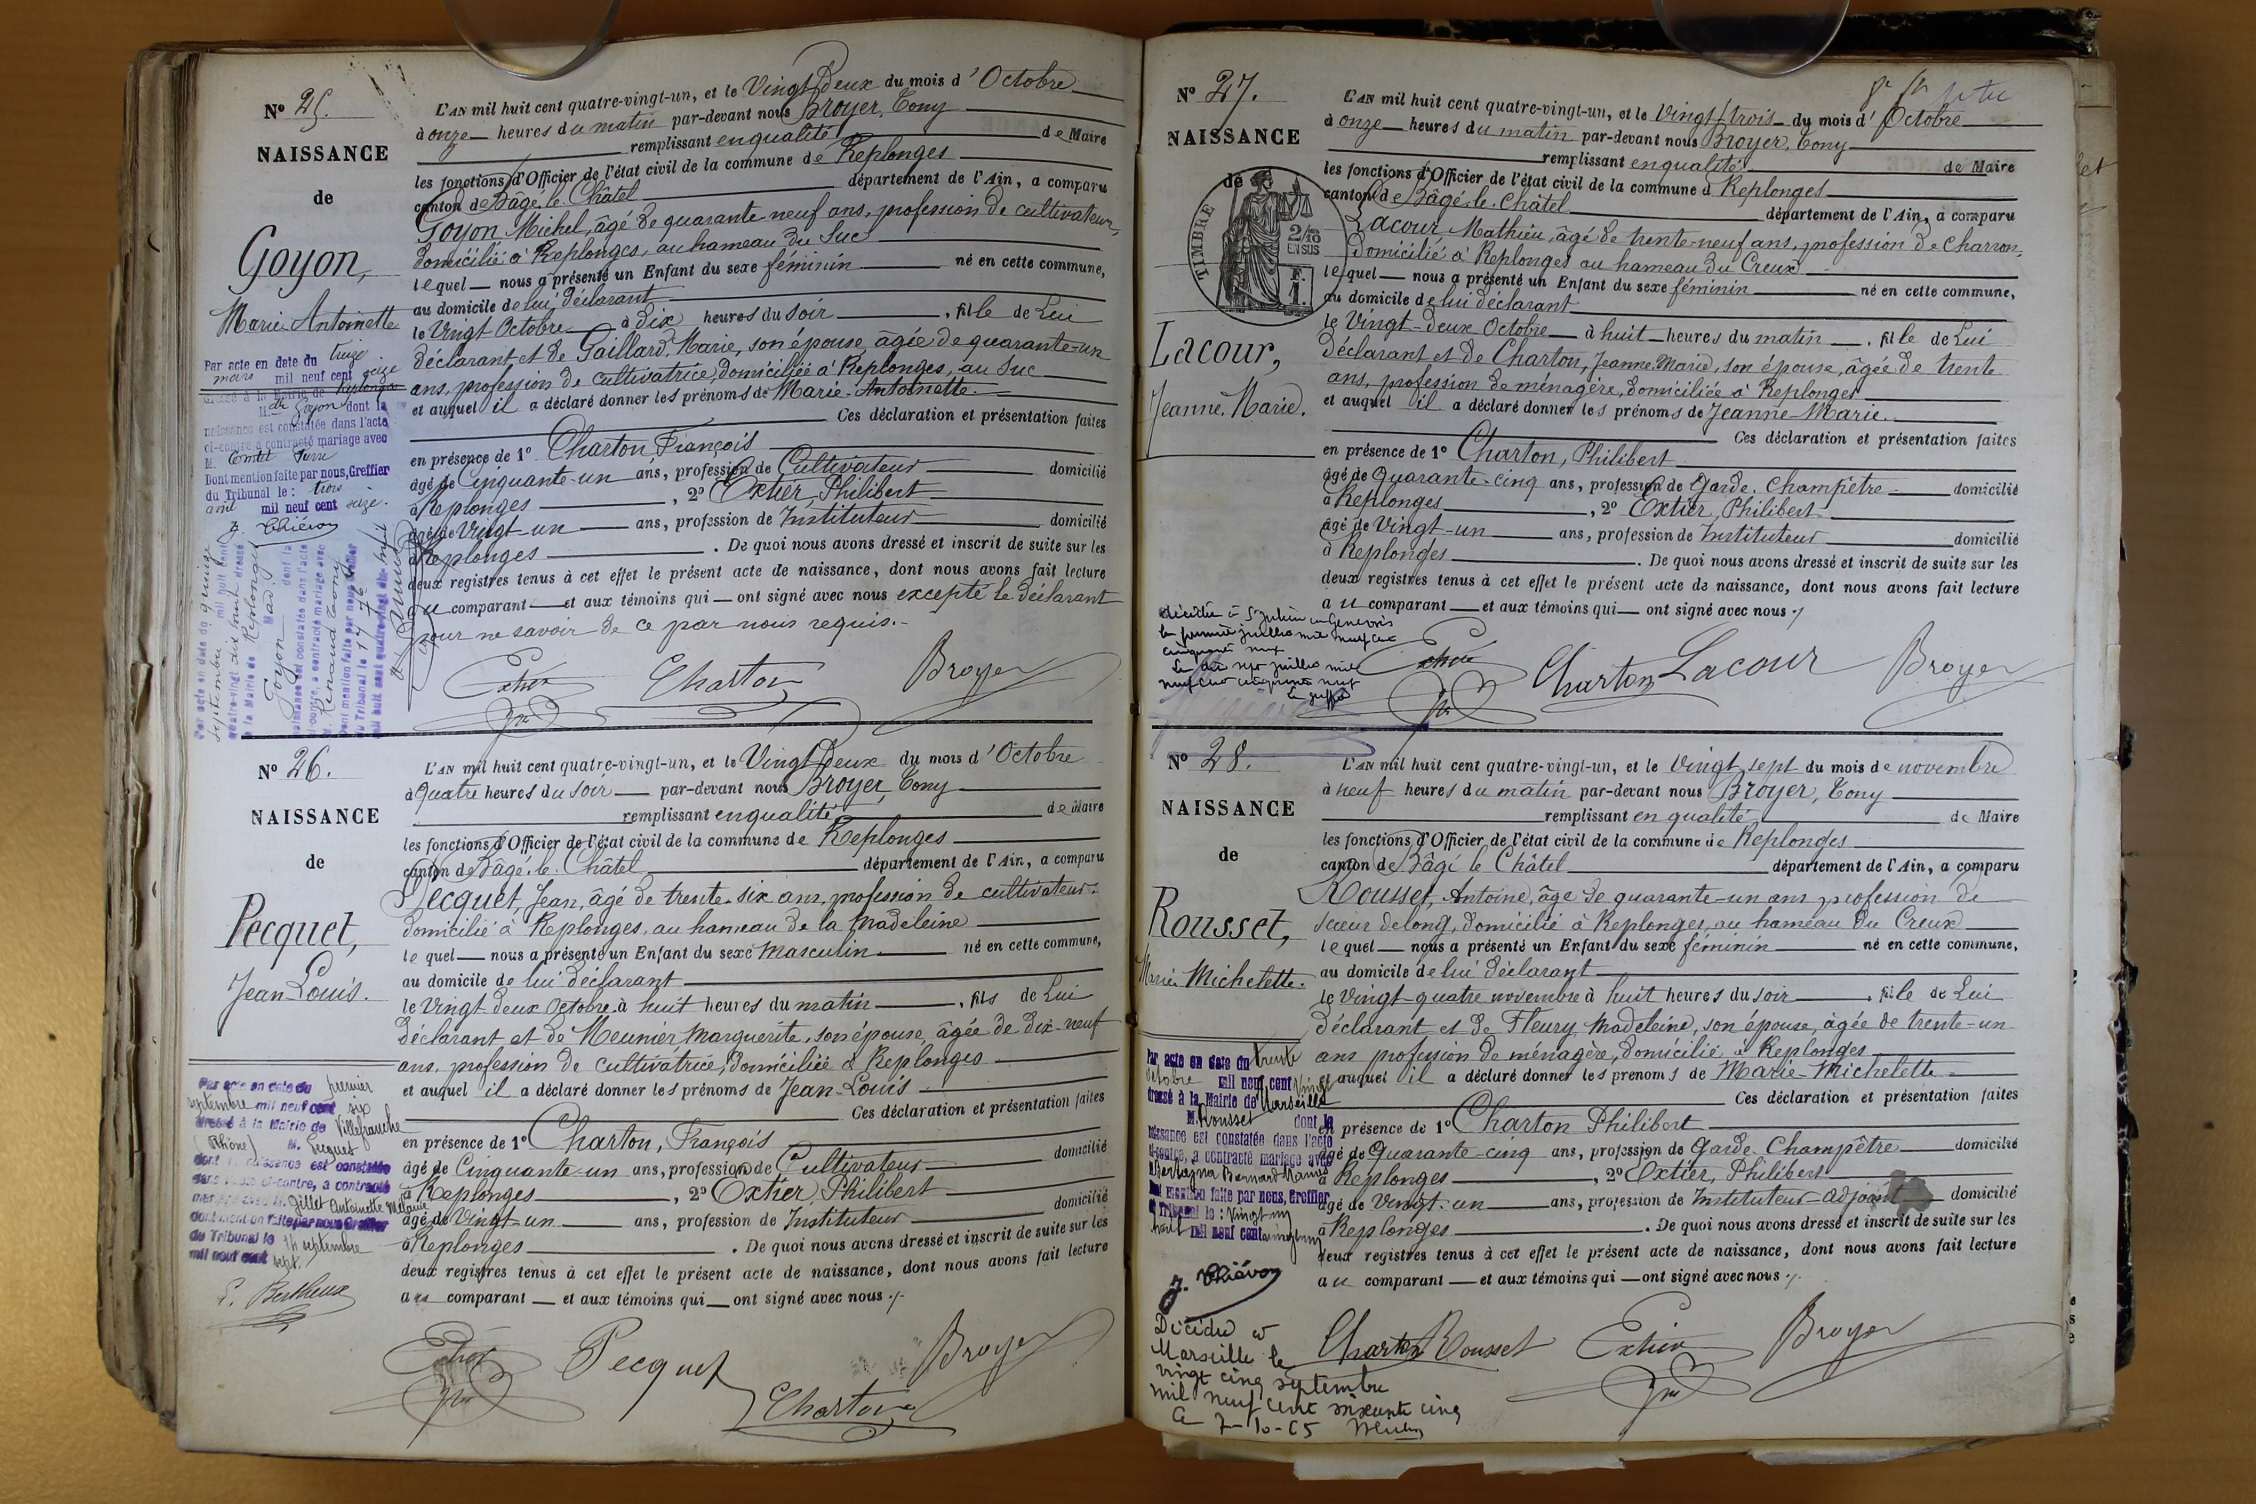 N° 25.
NAISSANCE
de
Goyon,
Marie Antoinette
Par acte en date du treize
mars mil neuf cent seize
dressé à la Mairie de Replonges
Goyon dont la
naissance est constatée dans l'acte
ci-contre a contracté mariage avec
M.
Dont mention faite par nous, Greffier
du Tribunal le : trois
avril mil neuf cent seize.
Par acte en date du quinze
septembre mil huit cent
quatre-vingt dix huit dressé
à la Mairie de Replonges
Goyon dont la
naissance est constatée dans l'acte
ci-contre, a contracté mariage avec
M. Renaud
Dont mention faite par nous Greffier
du Tribunal le 17
mil huit cent quatre-vingt dix-huit
L'AN mil huit cent quatre-vingt-un, et le Vingt Deux du mois d'Octobre
à onze heures du matin par-devant nous Broyer, Tony
remplissant en qualité de Maire
les fonctions d'Officier de l'état civil de la commune de Replonges
canton de Bâgé-le-Châtel département de l'Ain, a comparu
Goyon Michel, âgé de quarante neuf ans, profession de cultivateur,
domicilié à Replonges, au hameau du Suc
lequel nous a présenté un Enfant du sexe féminin né en cette commune,
au domicile de lui déclarant
le Vingt Octobre à dix heures du soir, fille de Lui
déclarant et de Gaillard, Marie, son épouse âgée de quarante-un
ans, profession de cultivatrice, domiciliée à Replonges, au Suc
et auquel il a déclaré donner les prénoms de Marie-Antoinette.
Ces déclaration et présentation faites
en présence de 1° Charton, François
âgé de Cinquante-un ans, profession de Cultivateur domicilié
à Replonges, 2° Extier, Philibert
âgé de Vingt-un ans, profession de Instituteur domicilié
à Replonges. De quoi nous avons dressé et inscrit de suite sur les
deux registres tenus à cet effet le présent acte de naissance, dont nous avons fait lecture
au comparant et aux témoins qui ont signé avec nous excepté le déclarant
pour ne savoir de ce par nous requis.
Extier Charton Broyer
N° 26.
NAISSANCE
de
Pecquet,
Jean-Louis.
Par acte en date du premier
septembre mil neuf cent six
dressé à la Mairie de Villefranche
(Rhône) M. Pecquet
dont la naissance est constatée
dans l'acte ci-contre, a contracté
mariage avec M. Gillet Antoinette Mélanie
dont mention faite par nous Greffier
du Tribunal le 14 septembre
mil neuf cent sept.
L. Bertheux
L'AN mil huit cent quatre-vingt-un, et le Vingt Deux du mois d'Octobre
à Quatre heures du soir par-devant nous Broyer, Tony
remplissant en qualité de Maire
les fonctions d'Officier de l'état civil de la commune de Replonges
canton de Bâgé-le-Châtel département de l'Ain, a comparu
Pecquet, Jean, âgé de trente-six ans, profession de cultivateur,
domicilié à Replonges, au hameau de la Madeleine
lequel nous a présenté un Enfant du sexe masculin né en cette commune,
au domicile de lui déclarant
le Vingt deux Octobre à huit heures du matin, fils de Lui
déclarant et de Meunier Marguerite, son épouse, âgée de dix-neuf
ans, profession de cultivatrice, domiciliée à Replonges
et auquel il a déclaré donner les prénoms de Jean-Louis
Ces déclaration et présentation faites
en présence de 1° Charton, François
âgé de Cinquante-un ans, profession de Cultivateur domicilié
à Replonges, 2° Extier, Philibert
âgé de Vingt-un ans, profession de Instituteur domicilié
à Replonges. De quoi nous avons dressé et inscrit de suite sur les
deux registres tenus à cet effet le présent acte de naissance, dont nous avons fait lecture
au comparant et aux témoins qui ont signé avec nous.
Extier Pecquet Charton Broyer
N° 27.
NAISSANCE
de
TIMBRE
2/10
EN SUS
F.
1.
Lacour,
Jeanne-Marie.
décédée à St Julien en Genevois
le premier juillet mil neuf cent
cinquante neuf
Le dix sept juillet mil
neuf cent cinquante neuf
L'AN mil huit cent quatre-vingt-un, et le Vingt trois du mois d'Octobre
à onze heures du matin par-devant nous Broyer, Tony
remplissant en qualité de Maire
les fonctions d'Officier de l'état civil de la commune de Replonges
canton de Bâgé-le-Châtel département de l'Ain, a comparu
Lacour, Mathieu, âgé de trente-neuf ans, profession de charron,
domicilié à Replonges au hameau du Creux
lequel nous a présenté un Enfant du sexe féminin né en cette commune,
au domicile de lui déclarant
le Vingt-deux Octobre à huit heures du matin, fille de Lui
déclarant et de Charton, Jeanne-Marie, son épouse, âgée de trente
ans, profession de ménagère, domiciliée à Replonges
et auquel il a déclaré donner les prénoms de Jeanne Marie.
Ces déclaration et présentation faites
en présence de 1° Charton, Philibert
âgé de Quarante-cinq ans, profession de Garde-Champêtre domicilié
à Replonges, 2° Extier, Philibert
âgé de Vingt-un ans, profession de Instituteur domicilié
à Replonges. De quoi nous avons dressé et inscrit de suite sur les
deux registres tenus à cet effet le présent acte de naissance, dont nous avons fait lecture
au comparant et aux témoins qui ont signé avec nous.
Extier Charton Lacour Broyer
N° 28.
NAISSANCE
de
Rousset,
Marie-Michelette.
Par acte en date du trente
octobre mil neuf cent vingt
dressé à la Mairie de Marseille
M. Rousset dont la
naissance est constatée dans l'acte
ci-contre, a contracté mariage avec
Bernard
Dont mention faite par nous, Greffier
du Tribunal le : vingt-un
mil neuf cent vingt-un
Décédée à
Marseille le
vingt cinq septembre
mil neuf cent soixante cinq
Le 7-10-65
L'AN mil huit cent quatre-vingt-un, et le Vingt sept du mois de novembre
à neuf heures du matin par-devant nous Broyer, Tony
remplissant en qualité de Maire
les fonctions d'Officier de l'état civil de la commune de Replonges
canton de Bâgé le Châtel département de l'Ain, a comparu
Rousset, Antoine, âgé de quarante-un ans profession de
scieur de long, domicilié à Replonges, au hameau du Creux
lequel nous a présenté un Enfant du sexe féminin né en cette commune,
au domicile de lui déclarant
le Vingt-quatre novembre à huit heures du soir, fille de Lui
déclarant et de Fleury Madeleine, son épouse, âgée de trente-un
ans profession de ménagère, domicilié à Replonges
et auquel il a déclaré donner les prénoms de Marie-Michelette
Ces déclaration et présentation faites
en présence de 1° Charton Philibert
âgé de Quarante-cinq ans, profession de Garde Champêtre domicilié
à Replonges, 2° Extier, Philibert
âgé de Vingt-un ans, profession de Instituteur-adjoint domicilié
à Replonges. De quoi nous avons dressé et inscrit de suite sur les
deux registres tenus à cet effet le présent acte de naissance, dont nous avons fait lecture
au comparant et aux témoins qui ont signé avec nous.
Charton Rousset Extier Broyer